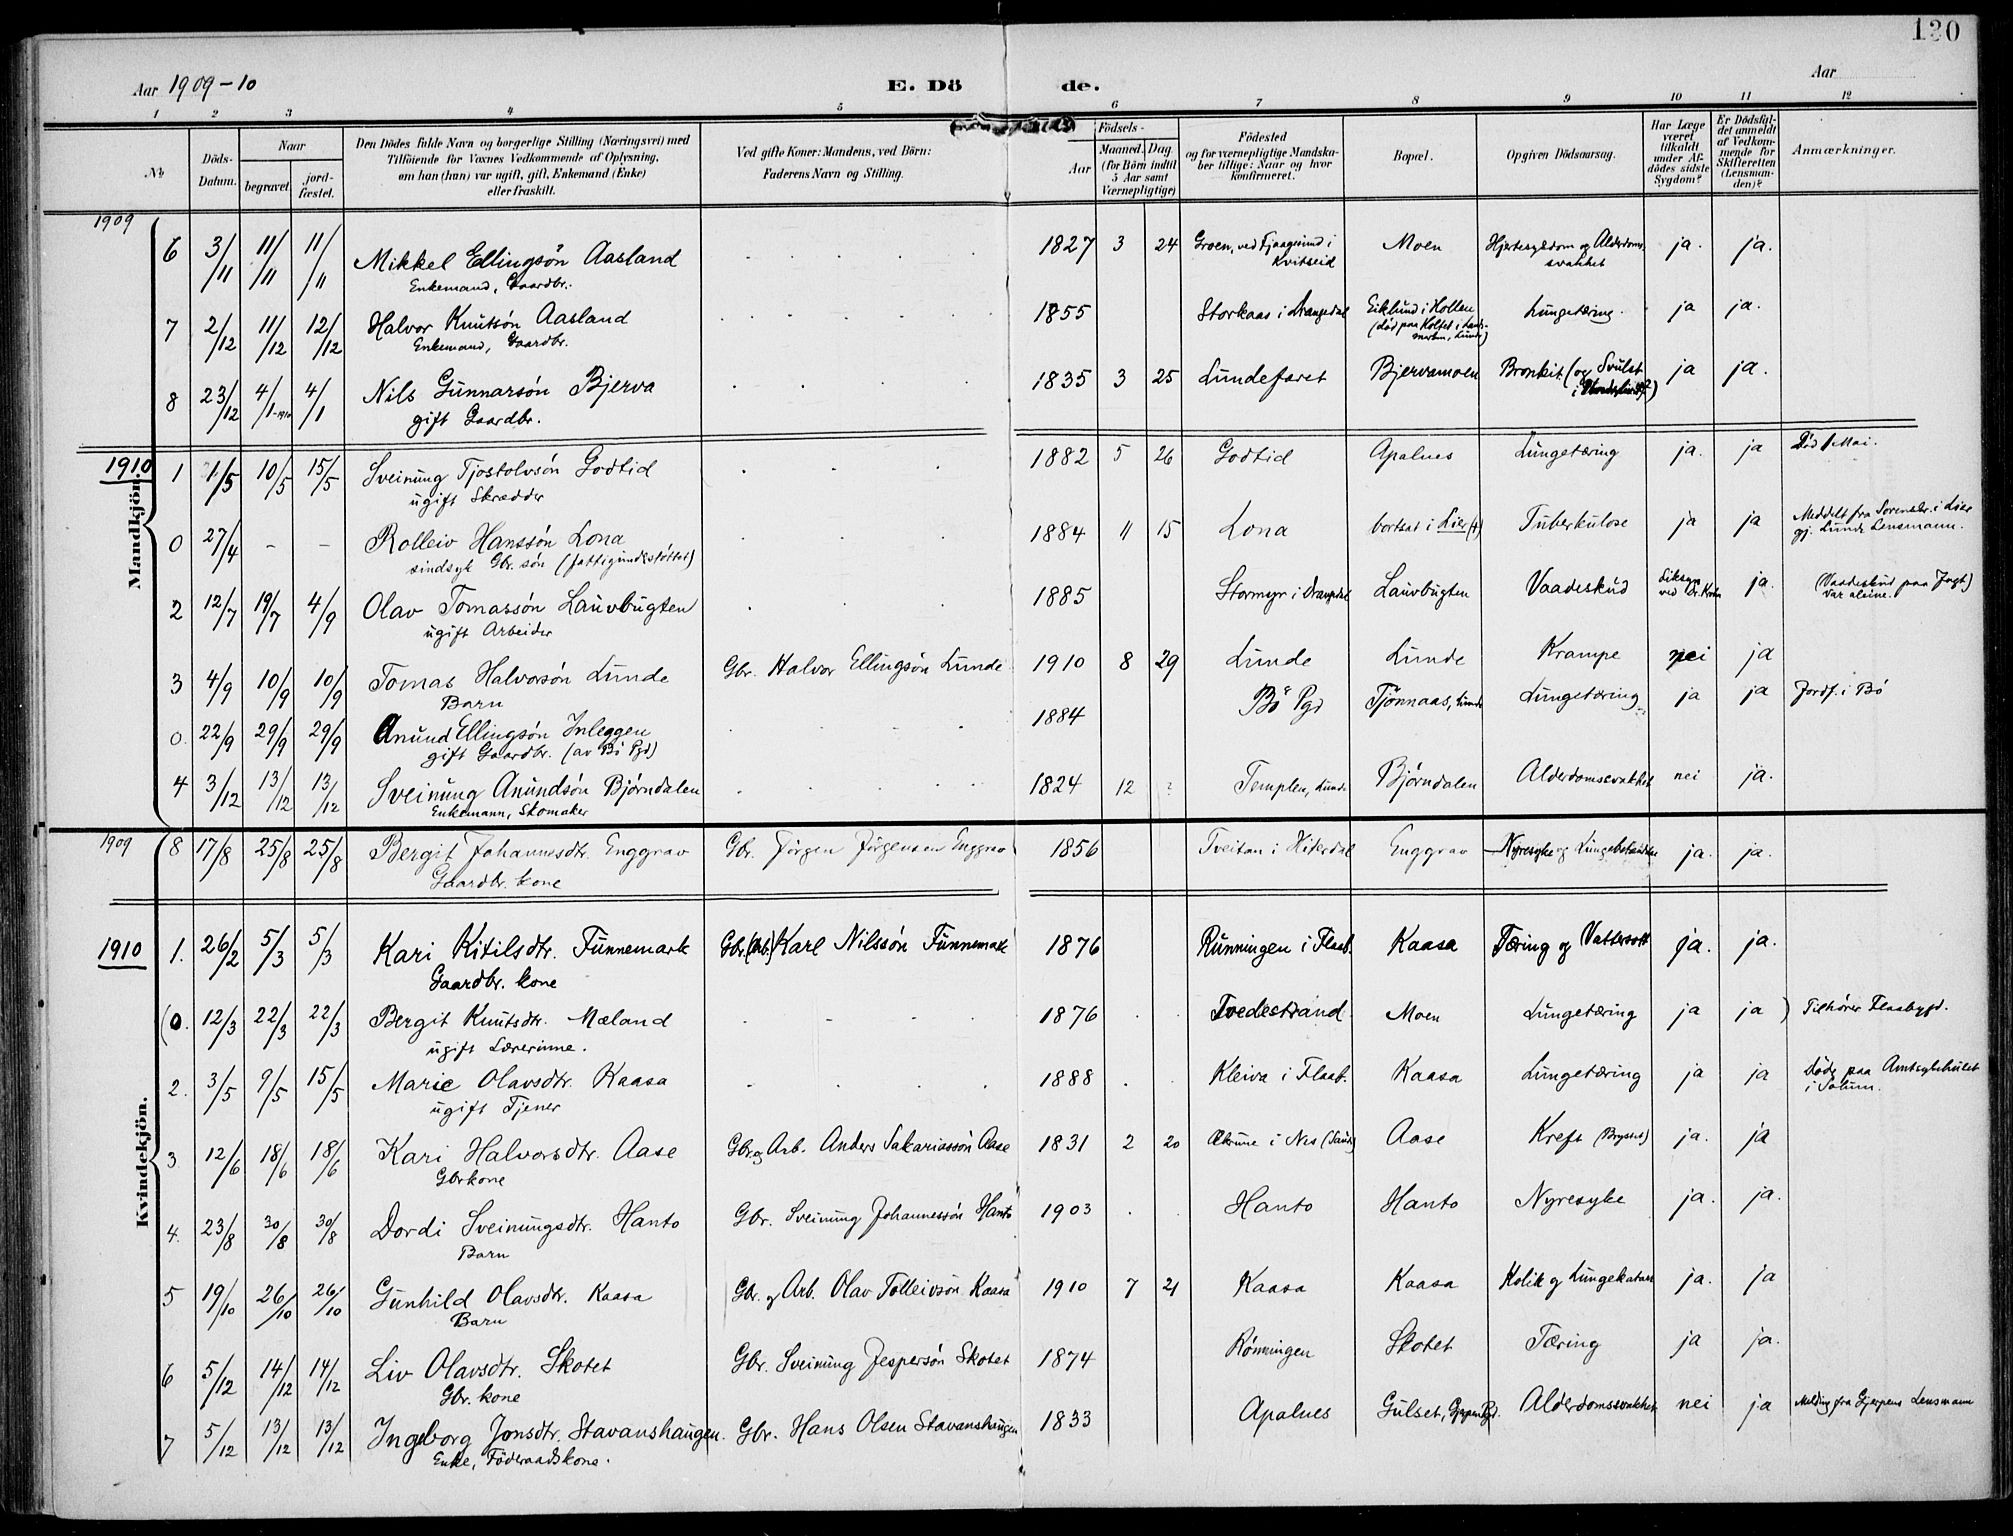 130
Aar 1909-10 E. Dö de. Aar
1 2 3 4 5 6 7 8 9 10 11 12
No.
Döds-Datum.
Naar
begravet.
jord-fæstet.
Den Dödes fulde Navn og borgerlige Stilling (Næringsvei) med
Tilföiende for Voxnes Vedkommende af Oplysning,
om han (hun) var ugift, gift, Enkemand (Enke)
eller fraskilt.
Ved gifte Koner: Mandens, ved Börn:
Faderens Navn og Stilling.
Födsels-
Aar
Maaned. Dag.
(for Börn indtil
5 Aar samt
Værnepligtige)
Födested
og for værnepligtige Mandska-
ber tillige: Naar og hvor
konfirmeret.
Bopæl.
Opgiven Dödsaarsag.
Har Læge
været
tilkaldt
under Af-
dödes sidste
Sygdom?
Er Dödsfal-
det anmeldt
af Vedkom-
mende for
Skifteretten
(Lensman-
den)?
Anmærkninger.
Mandkjön.
1909
6 3/11 11/11 11/11 Mikkel Ellingsön Aasland 1827 3 24 Groen, ved Fjaagesund i Kvitseid Moen Hjertesygdom og Alderdoms-svakhet ja. ja.
Enkemand, Gaardbr.
7 2/12 11/12 12/12 Halvor Knutsön Aasland 1855 Storkaas i Drangedal Eiklund i Hollen (død paa Kolset i Landsmarken, Lunde) Lungetæring. ja ja.
Enkemand, Gaardbr.
8 23/12 4/1-1910 4/1 Nils Gunnarsön Bjerva 1835 3 25 Lundefaret Bjervamoen Bronkit (og Svulst i ja ja.
gift Gaardbr.
1910
1 1/5 10/5 15/5 Sveinung Tjostolvsön Godtid 1882 5 26 Godtid Apalnes Lungetæring ja. ja Död 1 Mai.
ugift Skrædder
0 27/4 - - Rolleiv Hanssön Lona 1884 11 15 Lona bortsat i Lier (+) Tuberkulose ja ja Meddelt fra Sorenskr. i Lier gj. Lunde Lensmann.
sindsyk Gbr. sön (fattigunderstöttet)
2 12/7 19/7 4/9 Olav Tomassön Lauvbugten 1885 Stormyr i Drangedal Lauvbugten Vaadeskud Liksyn ved Dr. ja. (Vaadeskud paa Jagt) Var aleine.
ugift Arbeider
3 4/9 10/9 10/9 Tomas Halvorsön Lunde Gbr. Halvor Ellingsön Lunde 1910 8 29 Lunde Lunde Krampe nei ja
Barn
0. 22/9 29/9 29/9 Anund Ellingsön Inleggen 1884 Bö Pgd Tjönnaas, Lunde Lungetæring ja ja Jordf. i Bö
gift Gaardbr. (av Bö Pgd)
4 3/12 13/12 13/12 Sveinung Anundsön Bjørndalen 1824 12 ? Templen, Lunde Bjørndalen Alderdomssvakhet nei ja.
Enkemann, Skomaker
Kvindekjön.
1909
8 17/8 25/8 25/8 Bergit Johannesdtr. Enggrav Gbr. Jörgen Jörgensen Enggrav 1856 Tveitan i Hiterdal Enggrav Nyresyke og Lungebetændelse ja. ja.
Gaardbr. kone
1910
1. 26/2 5/3 5/3 Kari Kitilsdtr. Funnemark Gbr. (Arb.) Karl Nilssön Funnemark 1876 Runningen i Flaab. Kaasa Tæring og Vattersott ja. ja.
Gaardbr. kone
(0. 12/3 22/3 22/3 Bergit Knutsdtr. Mæland 1876 Tvedestrand. Moen Lungetæring ja ja ) Tilhører Flaabygd.
ugift Lærerinne.
2. 3/5 9/5 15/5 Marie Olavsdtr. Kaasa 1888 Kleiva i Flaab. Kaasa Lungetæring ja ja Döde paa Amtssykehuset i Solum.
ugift Tjener
3 12/6 18/6 18/6 Kari Halvorsdtr. Aase Gbr. og Arb. Anders Sakariassön Aase 1831 2 20 i Nes (Saude) Aase Kreft (Brystet) ja. ja
Gbrkone
4. 23/8 30/8 30/8 Dordi Sveinungsdtr. Hanto Gbr. Sveinung Johannessön Hanto 1903 Hanto Hanto Nyresyke ja. ja.
Barn
5 19/10 26/10 26/10 Gunhild Olavsdtr. Kaasa Gbr. og Arb. Olav Tolleivsön Kaasa 1910 7 21 Kaasa Kaasa Kolik og Lungekatarr ja. ja
Barn
6 5/12 14/12 14/12 Liv Olavsdtr. Skotet Gbr. Sveinung Jespersön Skotet 1874 Rönningen Skotet Tæring ja ja.
Gbr. kone
7 5/12 13/12 13/12 Ingeborg Jonsdtr. Stavanshaugen. Gbr. Hans Olsen Stavanshaugen 1833 Apalnes Gulset, Gjerpen Pgd. Alderdomssvakhet nei ja Melding fra Gjerpens Lensmann
Enke, Föderaadskone.